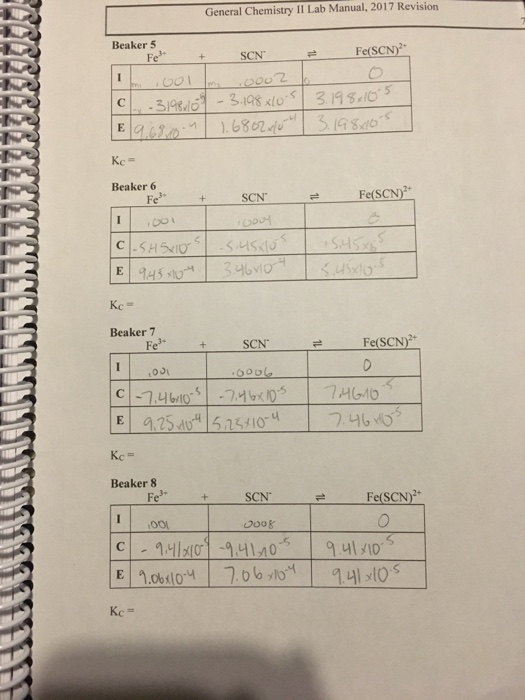 General Chemistry II Lab Manual, 2017 Revision
Beaker 5
Fe³⁺ + SCN⁻ ⇌ Fe(SCN)²⁺
I .001 .0002 0
C -3.198x10⁻⁵ -3.198x10⁻⁵ 3.198x10⁻⁵
E 9.68x10⁻⁴ 1.6802x10⁻⁴ 3.198x10⁻⁵
Kc =
Beaker 6
Fe³⁺ + SCN⁻ ⇌ Fe(SCN)²⁺
I .001 .0004 0
C -5.45x10⁻⁵ -5.45x10⁻⁵ +5.45x10⁻⁵
E 9.45x10⁻⁴ 3.46x10⁻⁴ 5.45x10⁻⁵
Kc =
Beaker 7
Fe³⁺ + SCN⁻ ⇌ Fe(SCN)²⁺
I .001 .0006 0
C -7.46x10⁻⁵ -7.46x10⁻⁵ 7.46x10⁻⁵
E 9.25x10⁻⁴ 5.25x10⁻⁴ 7.46x10⁻⁵
Kc =
Beaker 8
Fe³⁺ + SCN⁻ ⇌ Fe(SCN)²⁺
I .001 .0008 0
C -9.41x10⁻⁵ -9.41x10⁻⁵ 9.41x10⁻⁵
E 9.06x10⁻⁴ 7.06x10⁻⁴ 9.41x10⁻⁵
Kc =